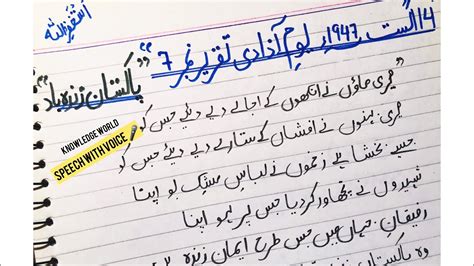 استغفراللہ
14 اگست 1947ء یوم آزادی تقریر نمبر 7
"پاکستان زندہ باد"
KNOWLEDGE WORLD
SPEECH WITH VOICE
میری ماؤں نے انکھوں کے اجالے دے دیئے جس کو
میری بہنوں نے افشاں کے ستارے دے دیئے جس کو
جسے بخشا ہے زخموں نے لباس لو اپنا
شہیدوں نے نچھاور کر دیا جس پر لہو اپنا
رفیقان جہاں میں جس طرح ایمان زندہ ہے
وہ پاکستان